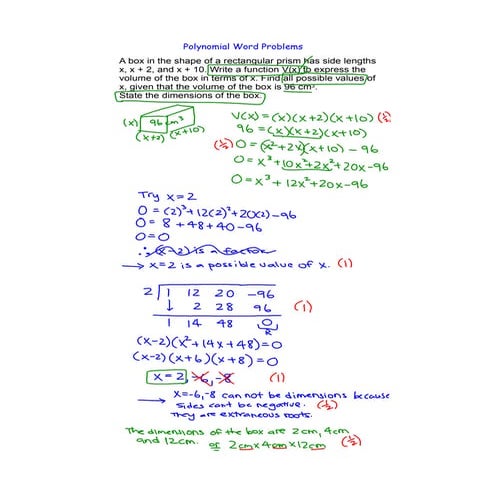 Polynomial Word Problems
A box in the shape of a rectangular prism has side lengths
x, x + 2, and x + 10. Write a function V(x) to express the
volume of the box in terms of x. Find all possible values of
x, given that the volume of the box is 96 cm³.
State the dimensions of the box.
(x) 96 cm³ (x+2) (x+10)
V(x) = (x)(x+2)(x+10) (½)
96 = (x)(x+2)(x+10)
(½) 0 = (x²+2x)(x+10) - 96
0 = x³ + 10x² + 2x² + 20x - 96
0 = x³ + 12x² + 20x - 96
Try x = 2
0 = (2)³ + 12(2)² + 20(2) - 96
0 = 8 + 48 + 40 - 96
0 = 0
∴ (x-2) is a factor
→ x = 2 is a possible value of x. (1)
2 | 1 12 20 -96
↓ 2 28 96 (1)
1 14 48 0
R
(x-2)(x² + 14x + 48) = 0
(x-2)(x+6)(x+8) = 0
x = 2, -6, -8 (1)
→ x = -6, -8 can not be dimensions because
sides can't be negative. (½)
They are extraneous roots.
The dimensions of the box are 2cm, 4cm
and 12cm. or 2cm × 4cm × 12cm (½)